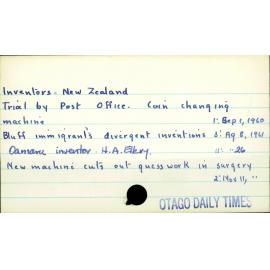 Inventors - New Zealand
Trial by Post Office. Coin changing
machine 1: Sep 1, 1960
Bluff immigrant's divergent inventions 3: Ag 8, 1961
Oamaru inventor H.A. 11: " 26
New machine cuts out guesswork in surgery
2: Nov 11, "
OTAGO DAILY TIMES